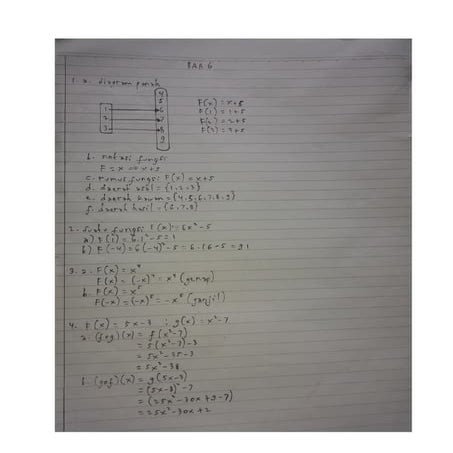 BAB 6
1. a. diagram panah
4
5
1 6
2 7
3 8
9
F(x) = x+5
F(1) = 1+5
F(2) = 2+5
F(3) = 3+5
b. notasi fungsi
F = x → x+5
c. rumus fungsi: F(x) = x+5
d. daerah asal = {1,2,3}
e. daerah kawan = {4,5,6,7,8,9}
f. daerah hasil = {6,7,8}
2. fungsi: f(x) = 6x²-5
a) F(1) = 6.1²-5=1
b) F(-4) = 6(-4)²-5 = 6.16-5 = 91
3. a. F(x) = x⁴
F(x) = (-x)⁴ = x⁴ (genap)
b. F(x) = x⁵
F(-x) = (-x)⁵ = -x⁵ (ganjil)
4. F(x) = 5x-3 ; g(x) = x²-7
a. (fog)(x) = f(x²-7)
= 5(x²-7)-3
= 5x²-35-3
= 5x²-38
b. (gof)(x) = g(5x-3)
= (5x-3)²-7
= (25x²-30x+9-7)
= 25x²-30x+2